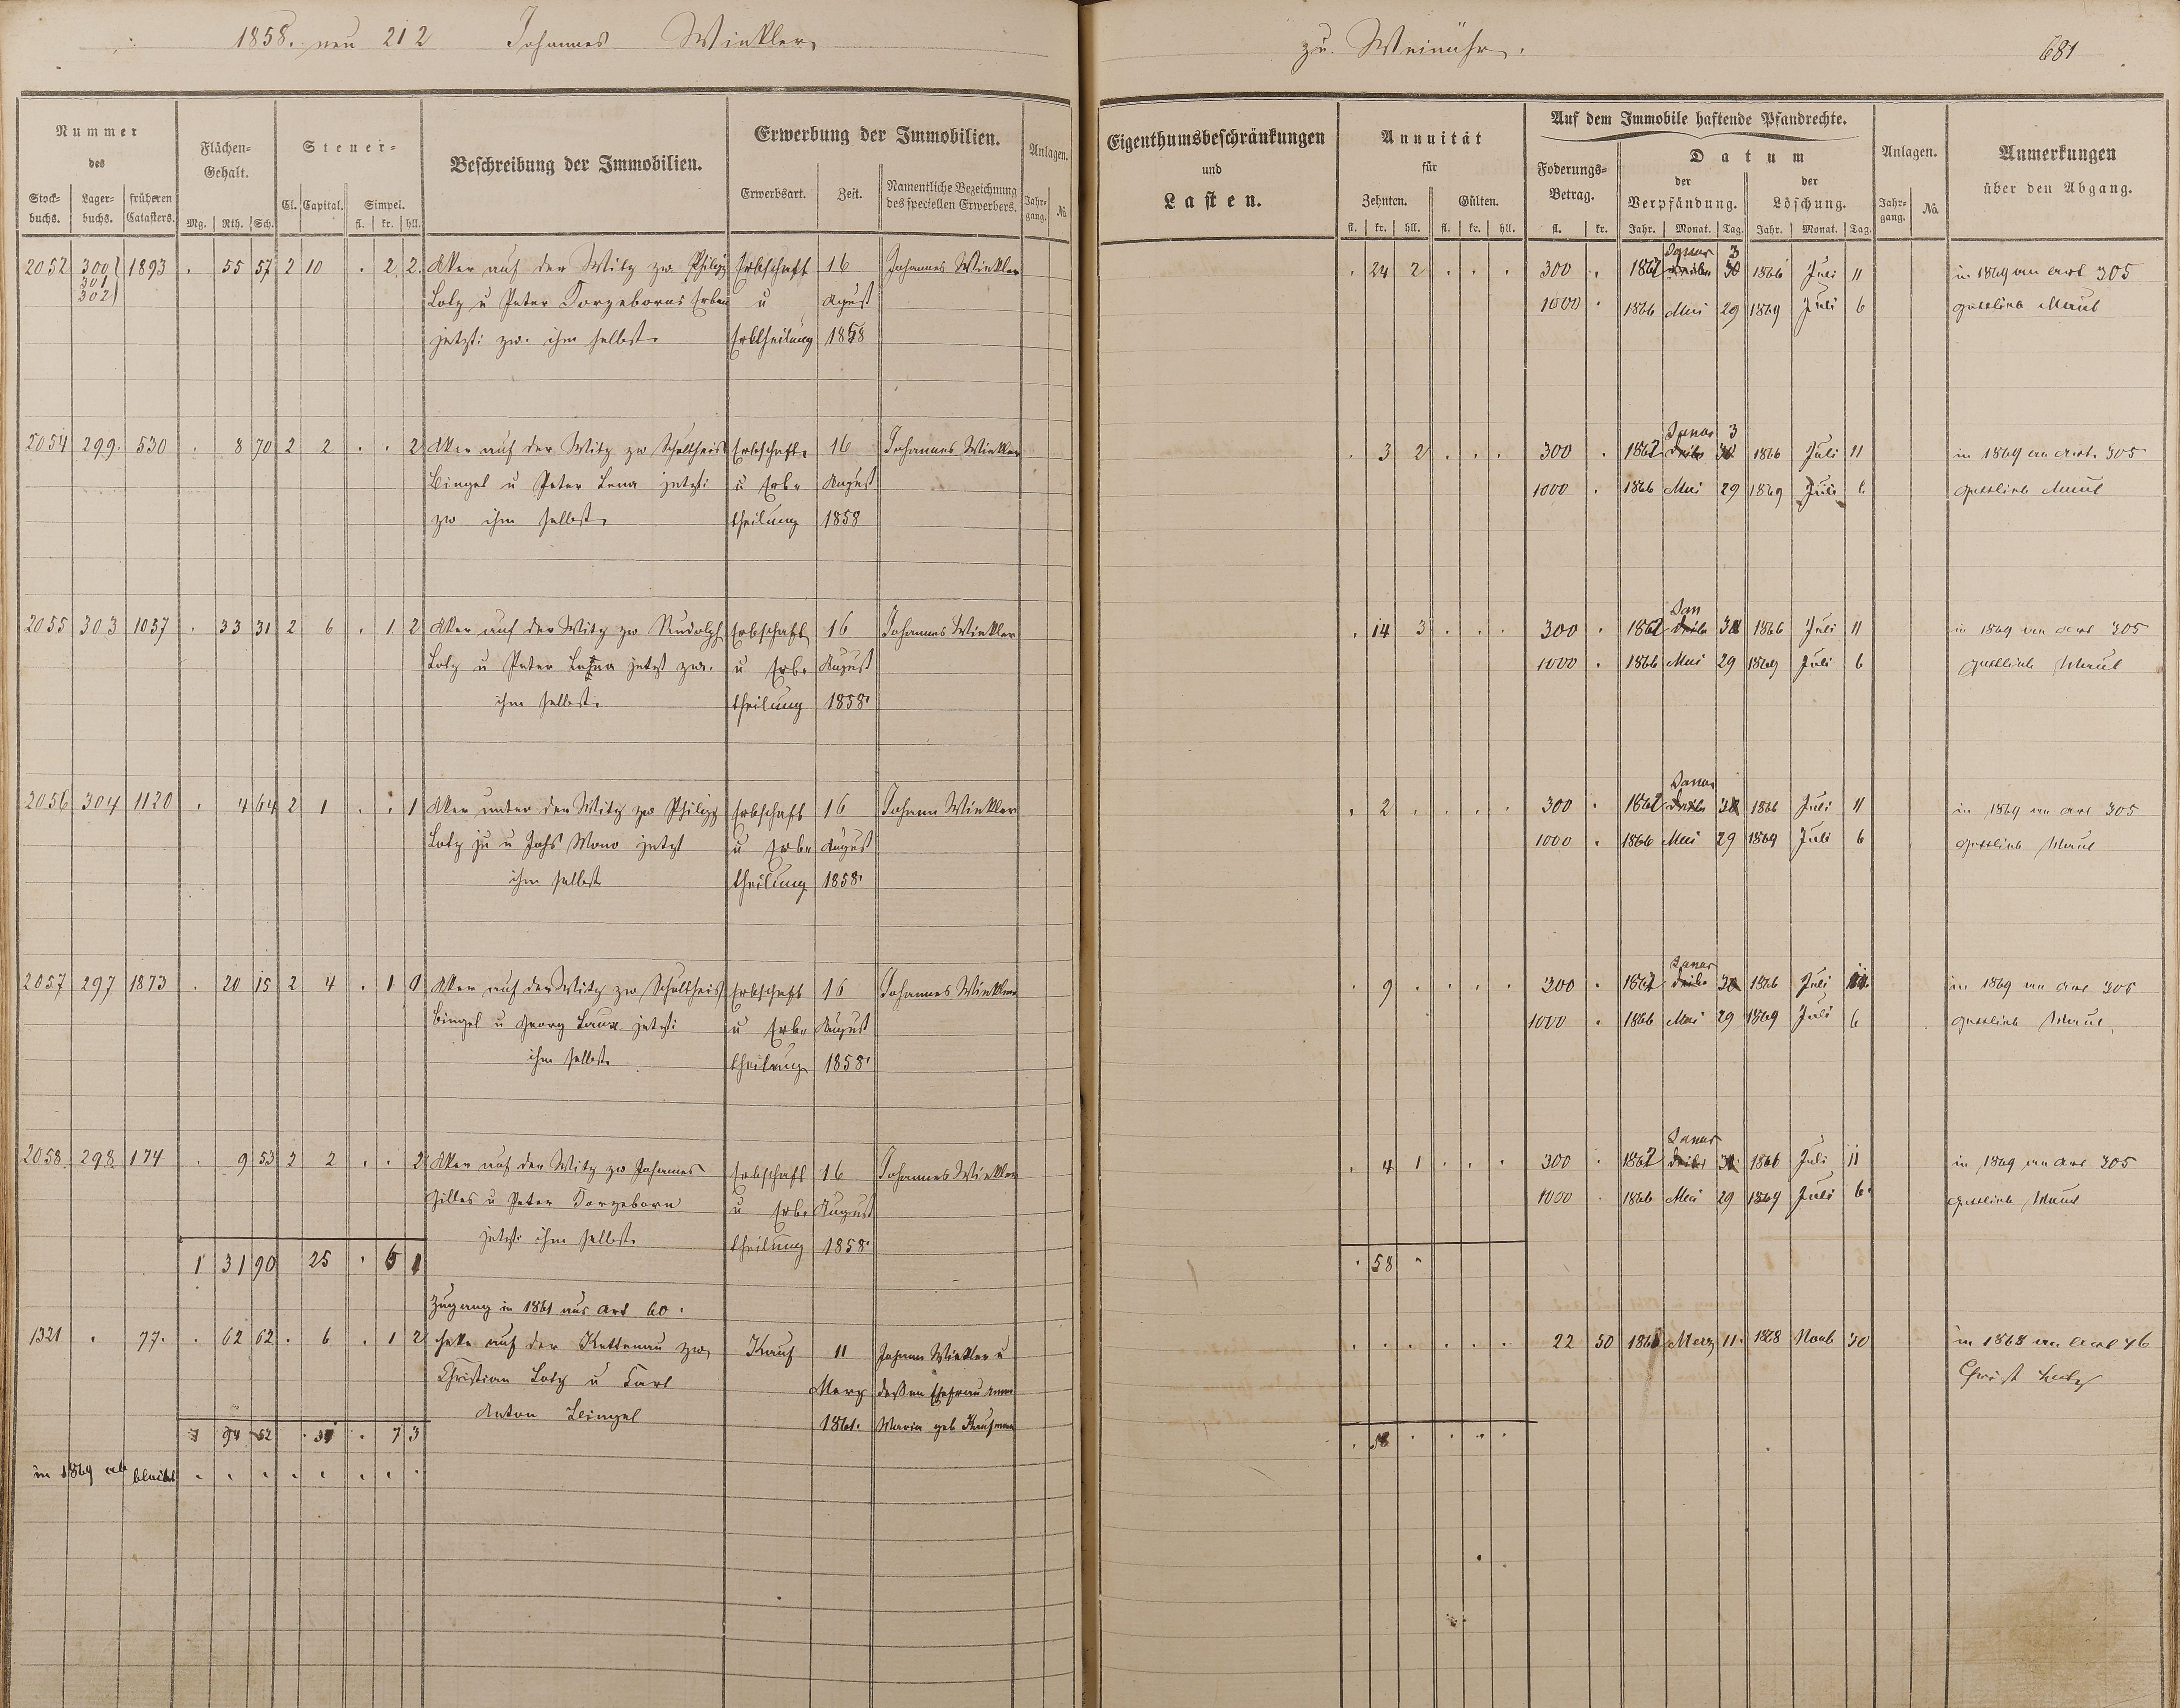 1858. neu 212 Johannes Winkler
zu Weinähr.
681
Nummer des
Stockbuchs. Lagerbuchs. früheren Catasters.
Flächen-Gehalt.
Mg. Rth. Sch.
Steuer-
Cl. Capital. Simpel.
fl. kr. hll.
Beschreibung der Immobilien.
Erwerbung der Immobilien.
Erwerbsart. Zeit. Namentliche Bezeichnung des speciellen Erwerbers.
Anlagen.
Jahrgang. No.
Eigenthumsbeschränkungen
und
Lasten.
Annuität
für
Zehnten. Gülten.
fl. kr. hll. fl. kr. hll.
Auf dem Immobile haftende Pfandrechte.
Foderungs-Betrag.
fl. kr.
Datum
der Verpfändung. der Löschung.
Jahr. Monat. Tag. Jahr. Monat. Tag.
Anlagen.
Jahrgang. No.
Anmerkungen
über den Abgang.
2052 300 1893 . 55 57 2 10 . 2 2 Aker auf der Witz zw Philipp Erbschaft 16 Johannes Winkler . 24 2 . . . 300 . 1862 Januar 3 1866 Juli 11 in 1869 an Art 305
301
302 Lotz u Peter Dorzeborns Erben u August 1000 . 1866 Mai 29 1869 Juli 6 Gottlieb Maul
jetzt: zw. ihm selbst. Erbtheilung 1858
2054 299. 530 . 8 70 2 2 . . 2 Aker auf der Witz zw Schultheis Erbschaft 16 Johannes Winkler . 3 2 . . . 300 . 1862 Januar 3 1866 Juli 11 in 1869 an Art. 305
Bingel u Peter Lena jetzt: u Erb- August 1000 . 1866 Mai 29 1869 Juli 6 Gottlieb Maul
zw ihm selbst. theilung 1858
2055 303 1057 . 33 31 2 6 . 1 2 Aker auf der Witz zw Rudolph Erbschaft 16 Johannes Winkler . 14 3 . . . 300 . 1862 Jan 3 1866 Juli 11 in 1869 an Art 305
Lotz u Peter Lena jetzt zw. u Erb- August 1000 . 1866 Mai 29 1869 Juli 6 Gottlieb Maul
ihm selbst. theilung 1858.
2056 304 1120 . 4 64 2 1 . . 1 Aker unter der Witz zw Philipp Erbschaft 16 Johann Winkler . 2 . . . . 300 . 1862 Januar 3 1866 Juli 11 in 1869 an Art 305
Lotz ju u Johs Mono jetzt u Erb- August 1000 . 1866 Mai 29 1869 Juli 6 Gottlieb Maul
ihm selbst theilung 1858.
2057 297 1873 . 20 15 2 4 . 1 0 Aker auf der Witz zw Schultheis Erbschaft 16 Johannes Winkler . 9 . . . . 300 . 1862 Januar 3 1866 Juli 11 in 1869 an Art 305
Bingel u Georg Laux jetzt: u Erb- August 1000 . 1866 Mai 29 1869 Juli 6 Gottlieb Maul.
ihm selbst. theilung 1858.
2058. 298 174 . 9 53 2 2 . . 2 Aker auf der Witz zw Johannes Erbschaft 16 Johannes Winkler . 4 1 . . . 300 . 1862 Januar 3 1866 Juli 11 in 1869 an Art 305
Gilles u Peter Dorzeborn u Erb- August 1000 . 1866 Mai 29 1869 Juli 6 Gottlieb Maul
jetzt: ihm selbst. theilung 1858.
1 31 90 25 . 6 1 . 58 .
Zugang in 1861 aus Art 60.
1321 . 77. . 62 62 . 6 . 1 2 Heke auf der Kettenau zw Kauf 11 Johann Winkler u . . . . . . 22 50 1861 Merz 11. 1868 Novb 30 in 1868 an Art 46
Christian Lotz u Carl Merz dessen Ehefrau Anna Christ Lotz
Anton Bingel 1861. Maria geb Kaufmann
1 94 52 . 31 . 7 3 . 58 . . . .
in 1869 ab bleibt . . . . . . . .